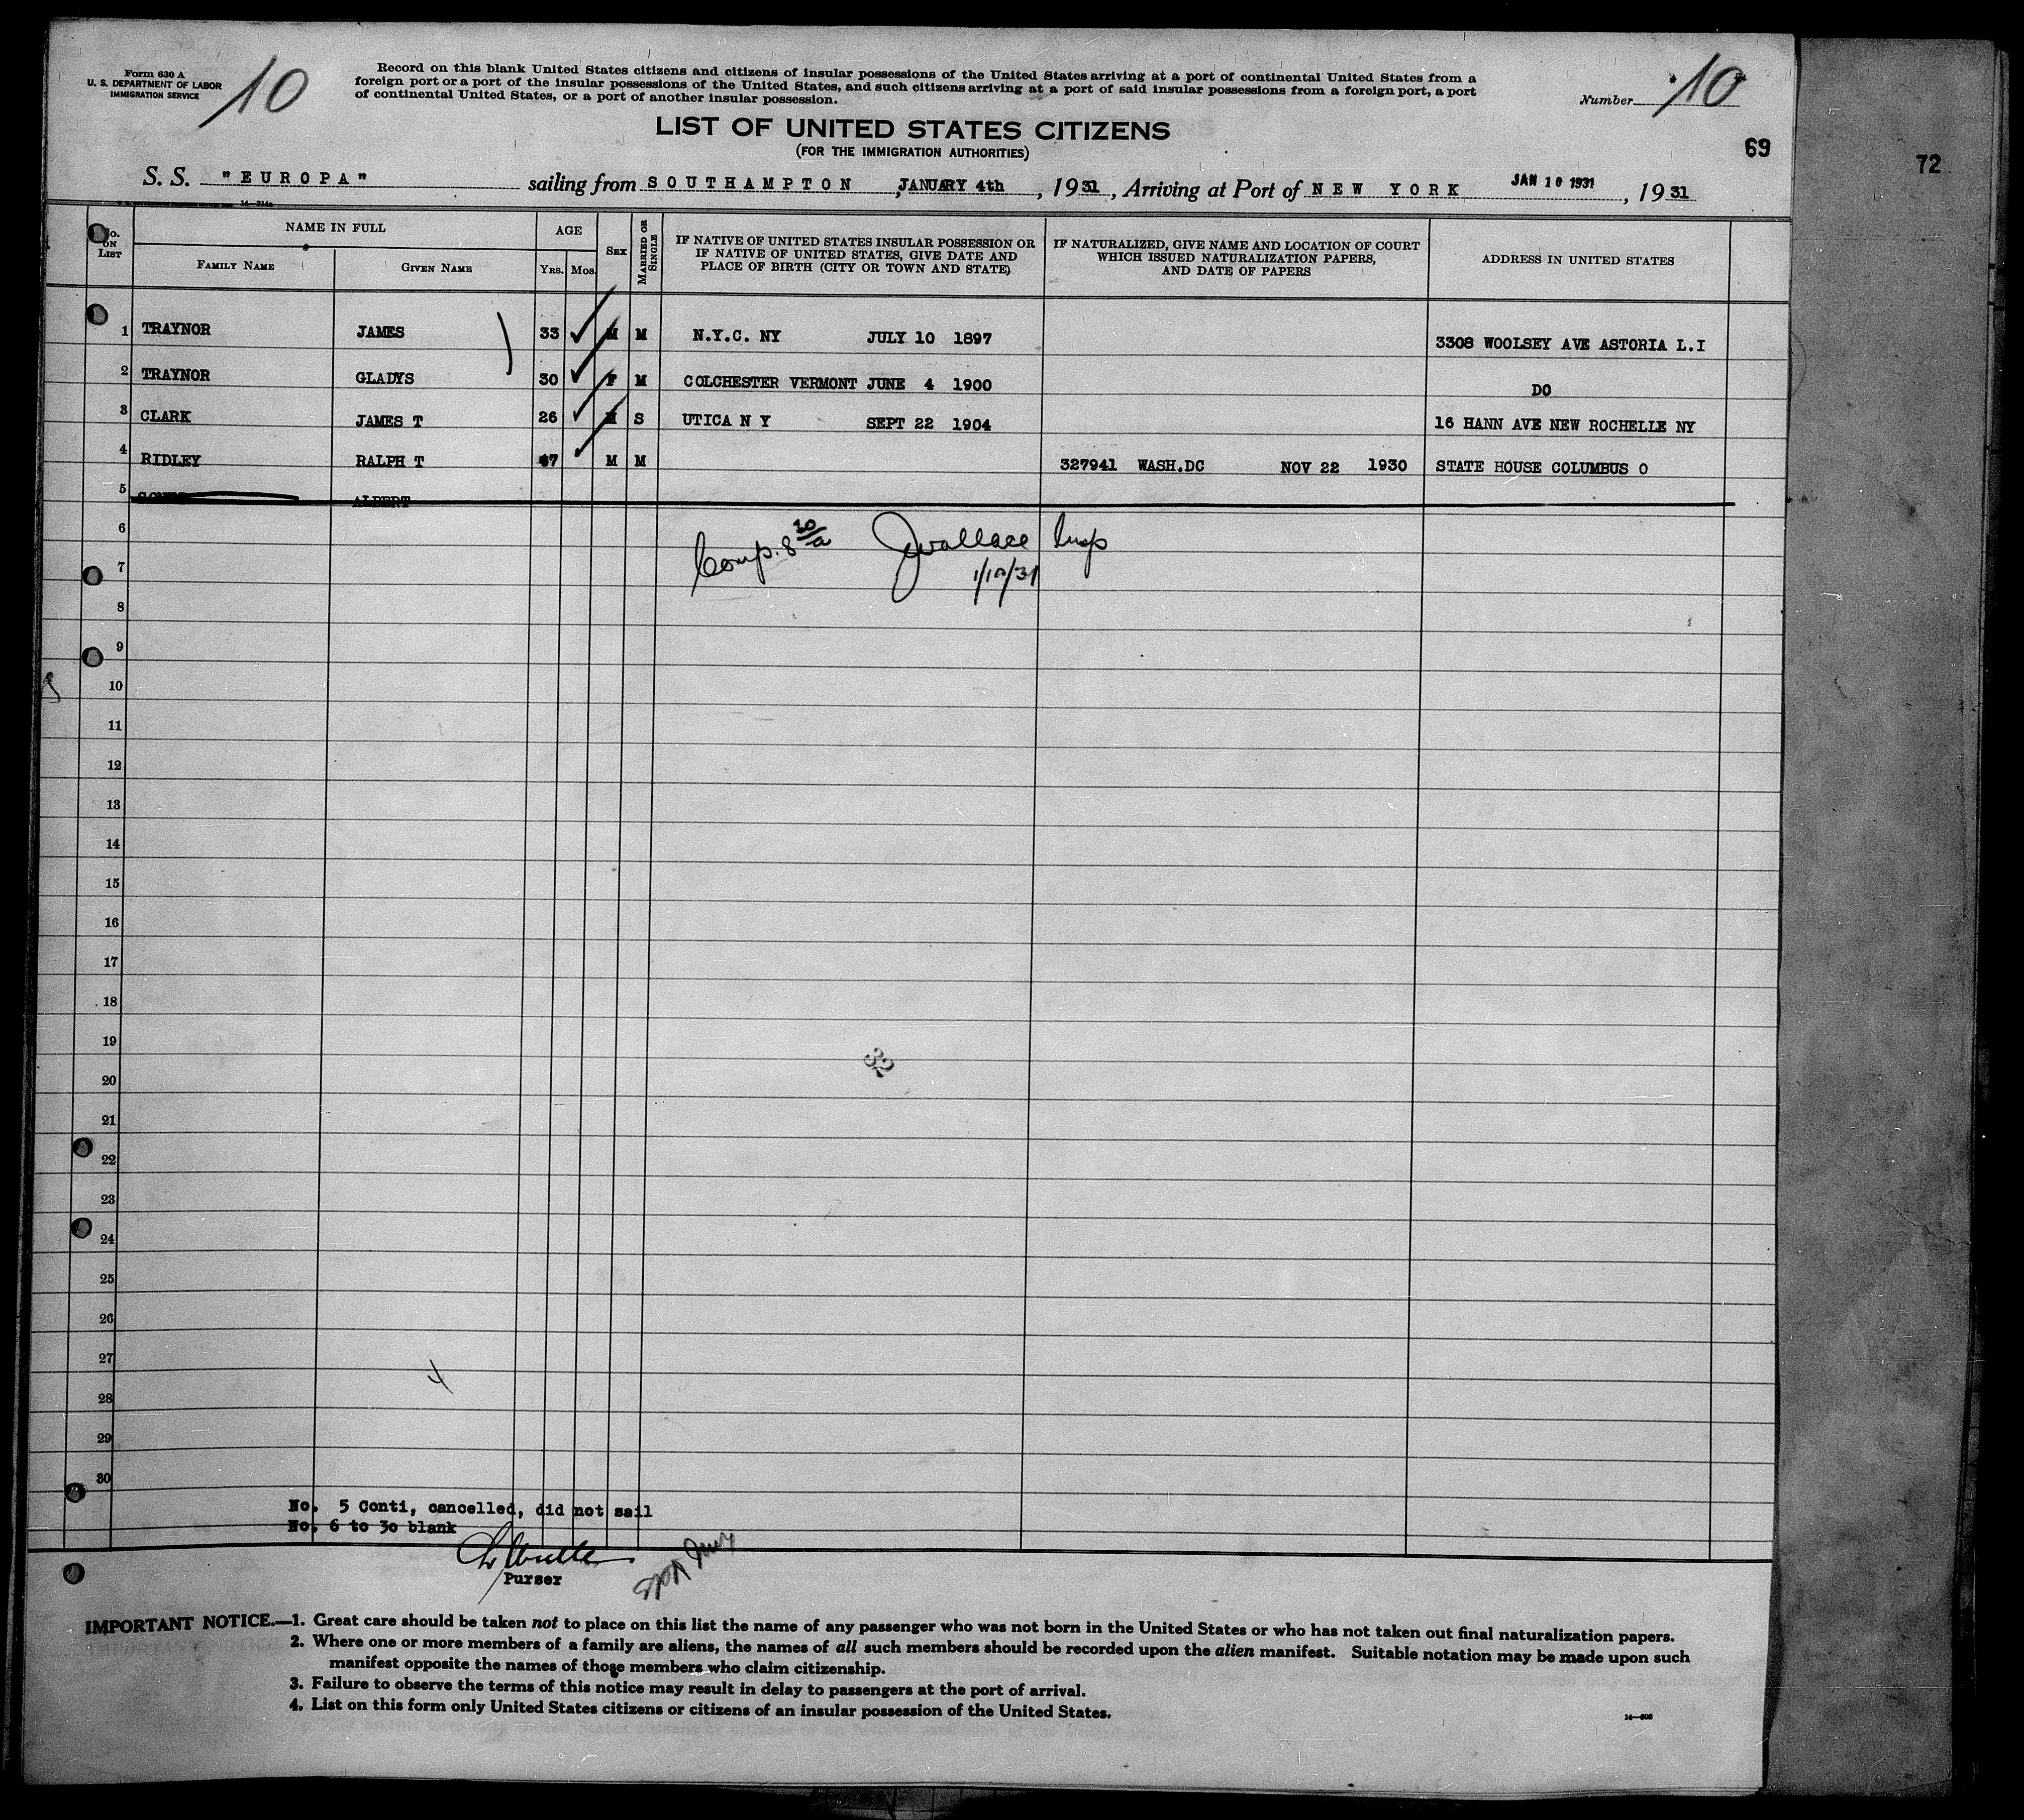 Form 630 A
U. S. DEPARTMENT OF LABOR
IMMIGRATION SERVICE
10
Record on this blank United States citizens and citizens of insular possessions of the United States arriving at a port of continental United States from a
foreign port or a port of the insular possessions of the United States, and such citizens arriving at a port of said insular possessions from a foreign port, a port
of continental United States, or a port of another insular possession.
Number 10
LIST OF UNITED STATES CITIZENS
(FOR THE IMMIGRATION AUTHORITIES)
69
72
S. S. "EUROPA" sailing from SOUTHAMPTON, JANUARY 4th, 1931, Arriving at Port of NEW YORK JAN 10 1931, 1931
No. ON LIST NAME IN FULL AGE SEX MARRIED OR SINGLE IF NATIVE OF UNITED STATES INSULAR POSSESSION OR IF NATIVE OF UNITED STATES, GIVE DATE AND PLACE OF BIRTH (CITY OR TOWN AND STATE) IF NATURALIZED, GIVE NAME AND LOCATION OF COURT WHICH ISSUED NATURALIZATION PAPERS, AND DATE OF PAPERS ADDRESS IN UNITED STATES
FAMILY NAME GIVEN NAME YRS. MOS.
1 TRAYNOR JAMES 33 M M N.Y.C. NY JULY 10 1897 3308 WOOLSEY AVE ASTORIA L.I
2 TRAYNOR GLADYS 30 F M COLCHESTER VERMONT JUNE 4 1900 DO
3 CLARK JAMES T 26 M S UTICA N Y SEPT 22 1904 16 HANN AVE NEW ROCHELLE NY
4 RIDLEY RALPH T 47 M M 327941 WASH.DC NOV 22 1930 STATE HOUSE COLUMBUS O
5 ALBERT
6
Comp. 8 30/a JWallace Insp
7
1/10/31
8
9
10
11
12
13
14
15
16
17
18
19
32
20
21
22
23
24
25
26
27
4
28
29
30
No. 5 Conti, cancelled, did not sail
No. 6 to 30 blank
Purser
IMPORTANT NOTICE.—1. Great care should be taken not to place on this list the name of any passenger who was not born in the United States or who has not taken out final naturalization papers.
2. Where one or more members of a family are aliens, the names of all such members should be recorded upon the alien manifest. Suitable notation may be made upon such
manifest opposite the names of those members who claim citizenship.
3. Failure to observe the terms of this notice may result in delay to passengers at the port of arrival.
4. List on this form only United States citizens or citizens of an insular possession of the United States.